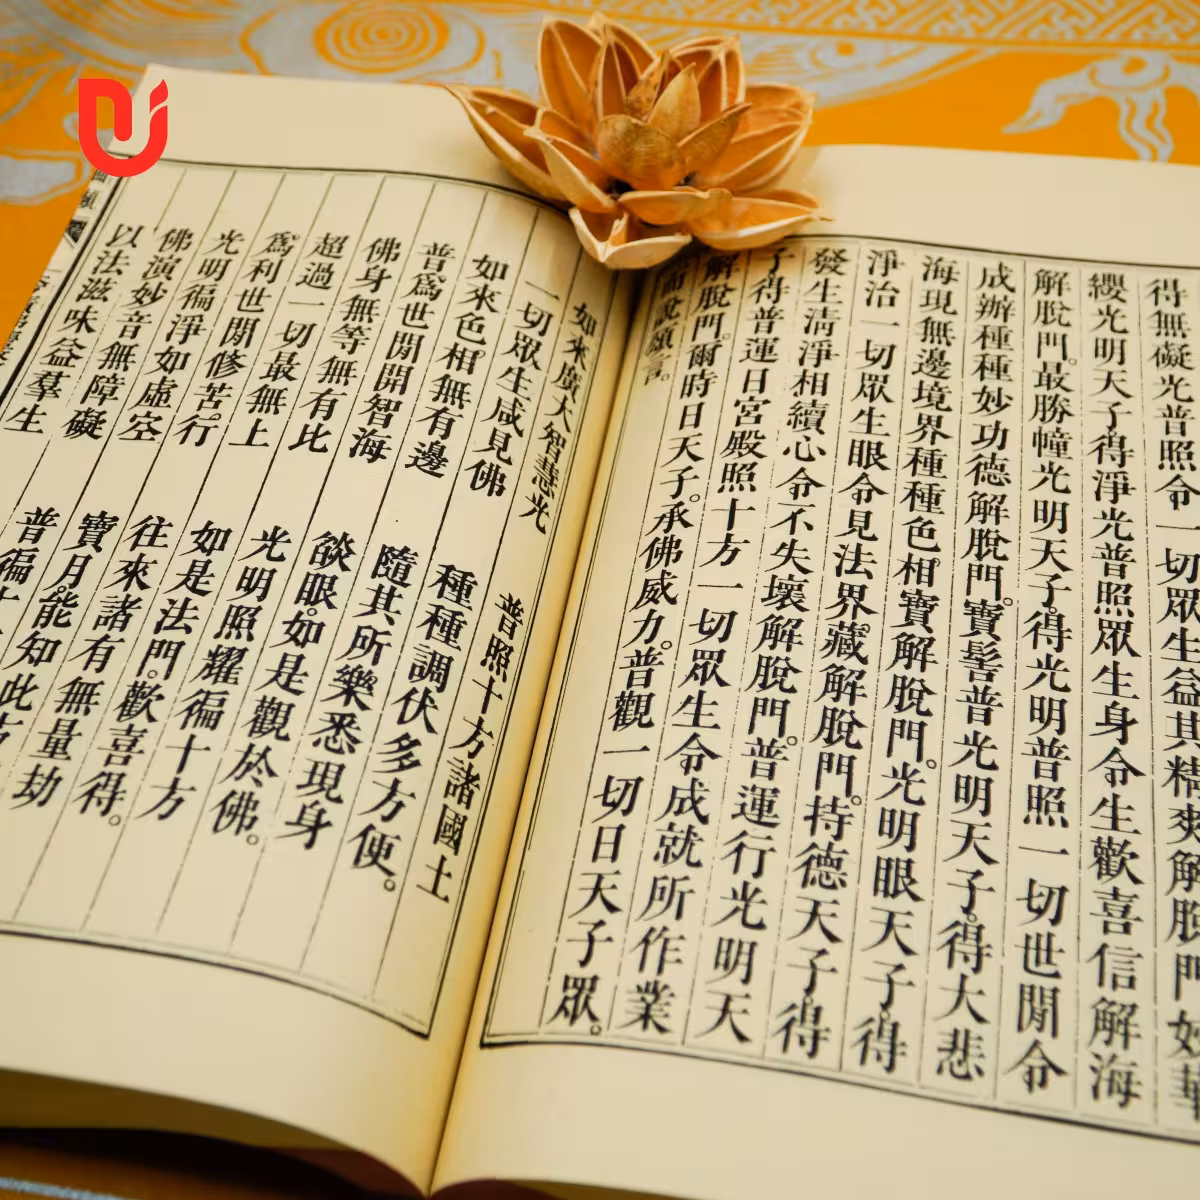 得無礙光普照令一切眾生益其精爽解脫門妙華
纓光明天子得淨光普照眾生身令生歡喜信解海
解脫門。最勝幢光明天子。得光明普照一切世閒令
成辦種種妙功德解脫門。寶髻普光明天子。得大悲
海現無邊境界種種色相寶解脫門。光明眼天子。得
淨治一切眾生眼令見法界藏解脫門。持德天子。得
發生清淨相續心令不失壞解脫門。普運行光明天
子得普運日宮殿照十方一切眾生令成就所作業
解脫門。爾時日天子。承佛威力。普觀一切日天子眾。
而說頌言。
如來廣大智慧光 普照十方諸國土
一切眾生咸見佛 種種調伏多方便。
如來色相無有邊 隨其所樂悉現身
普爲世閒開智海 燄眼。如是觀於佛。
佛身無等無有比 光明照耀徧十方
超過一切最無上 如是法門。歡喜得。
爲利世閒修苦行 往來諸有無量劫
光明徧淨如虛空 寶月。能知此方
佛演妙音無障礙 普徧
以法滋味益羣生